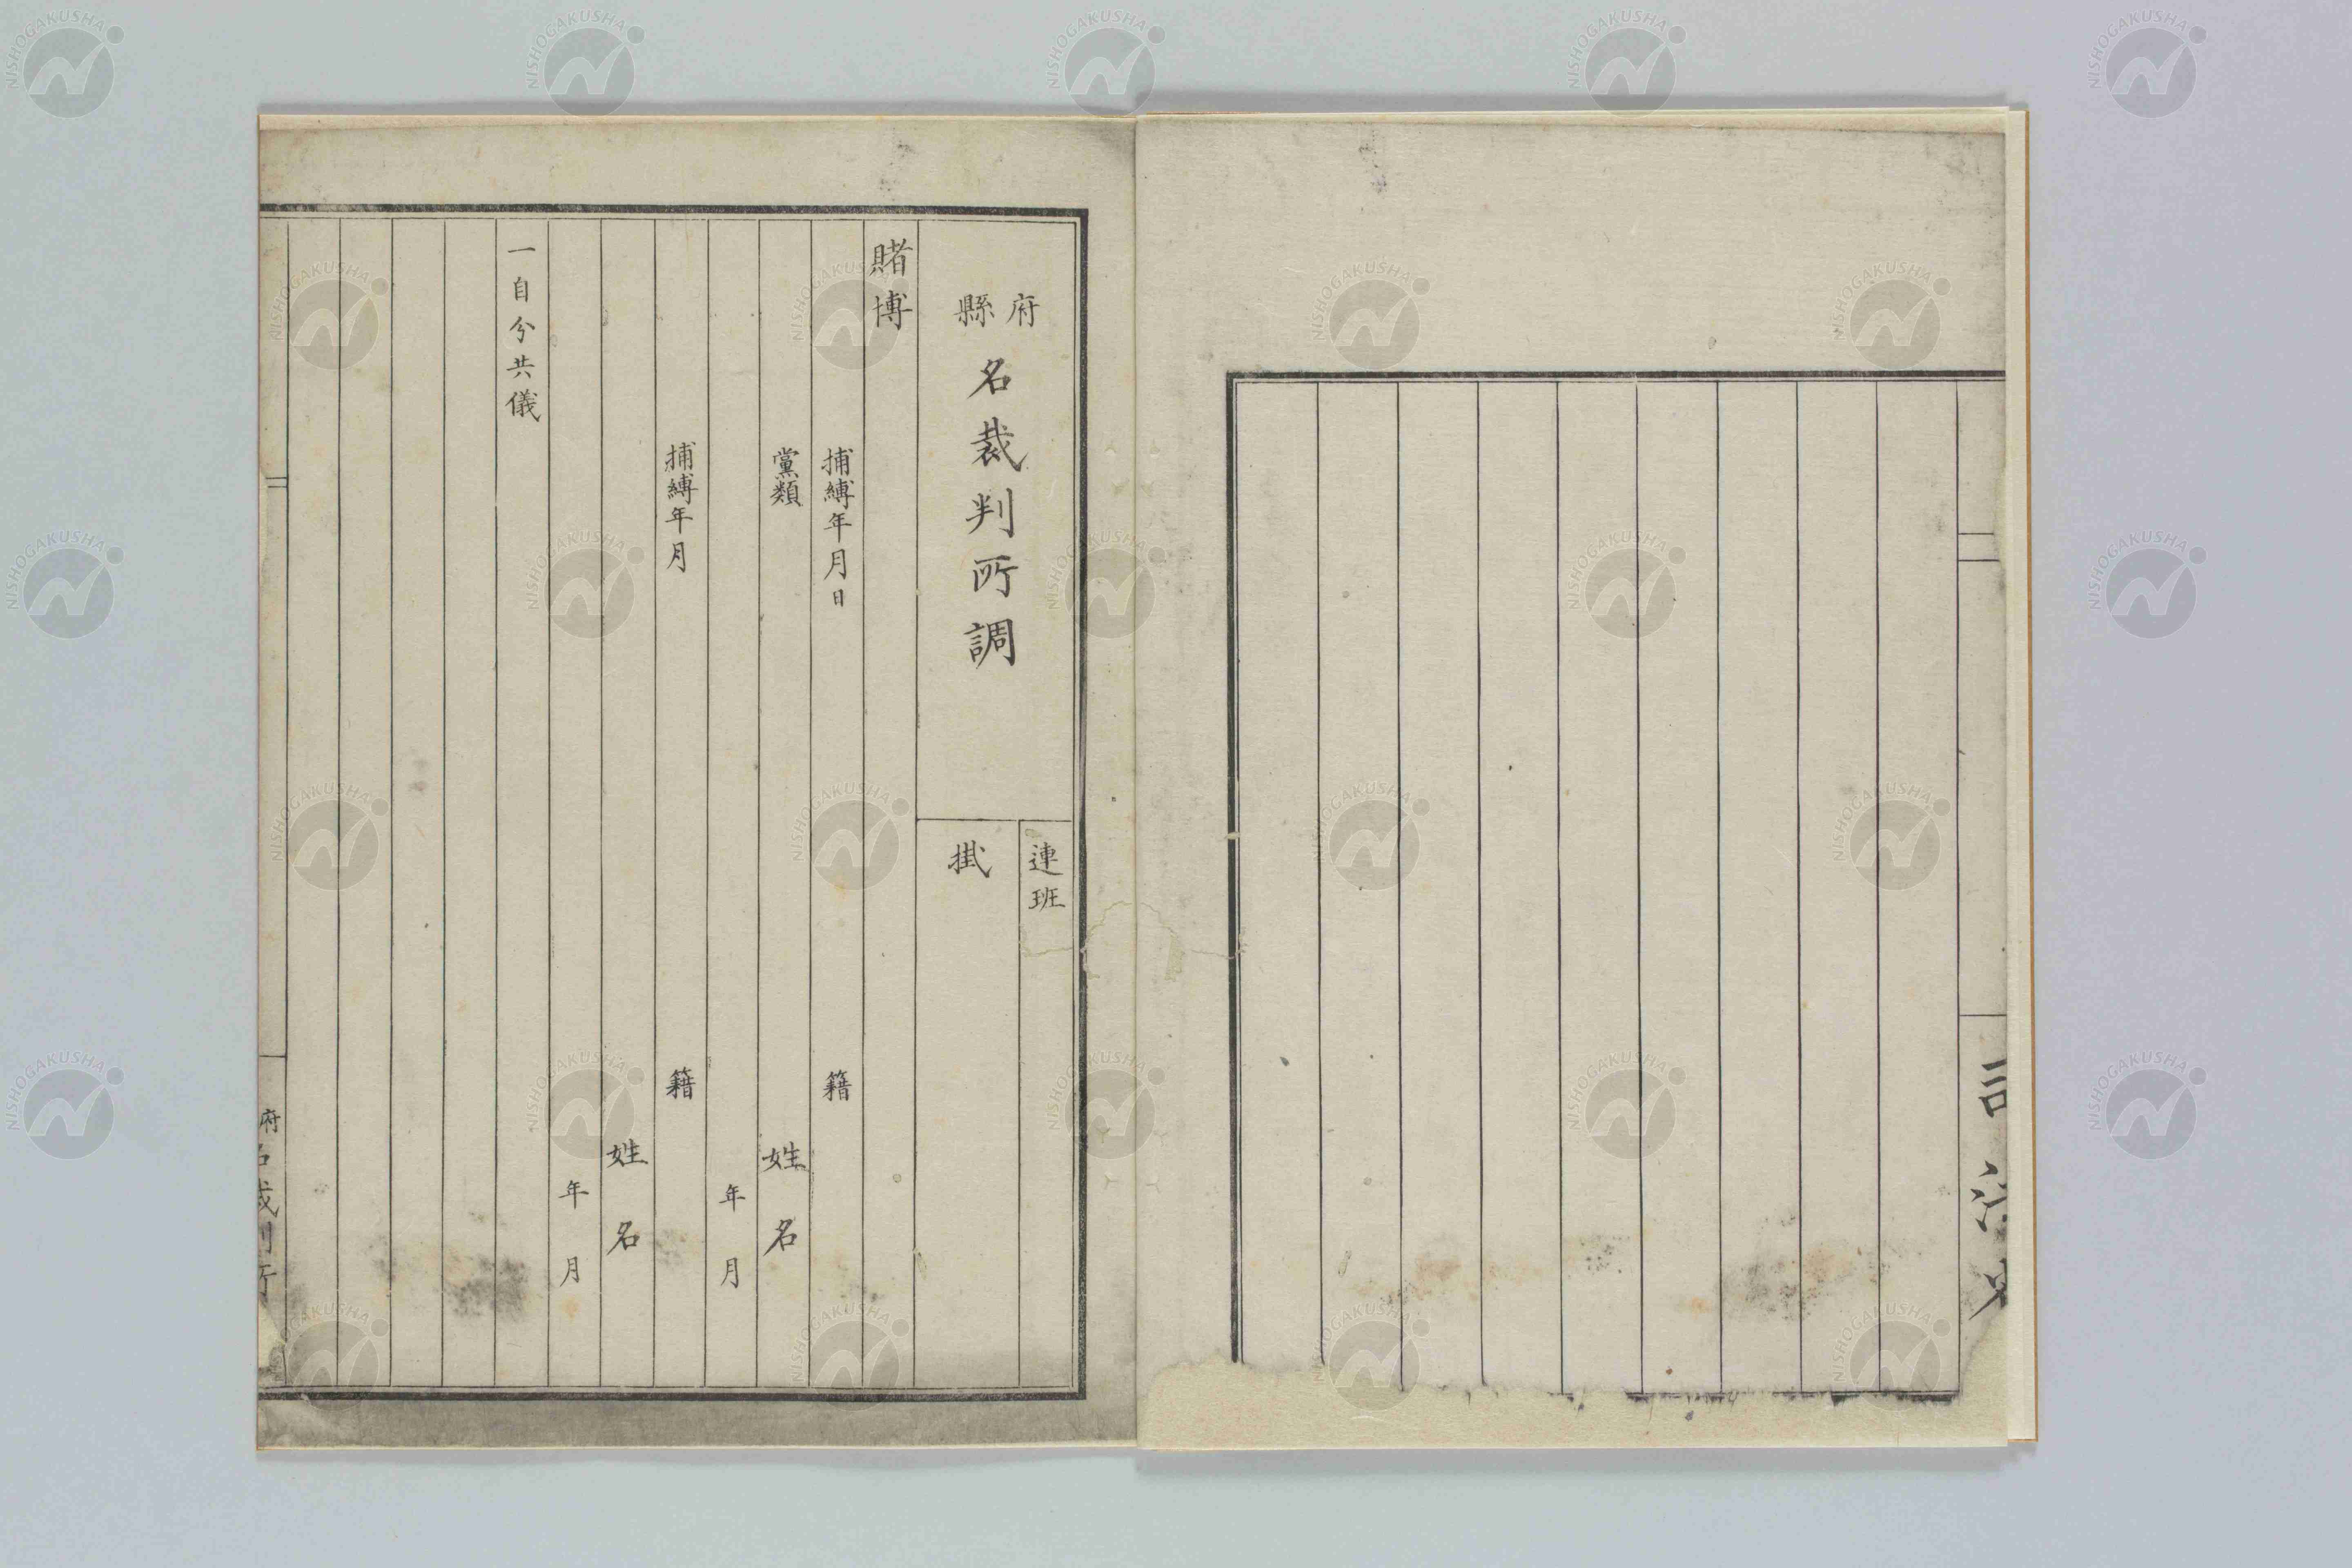 司法省
府縣名裁判所調
連班
掛
賭博
捕縛年月日 籍
黨類 姓名
年月
捕縛年月 籍
姓名
年月
一自分共儀
府名裁判所
NISHOGAKUSHA